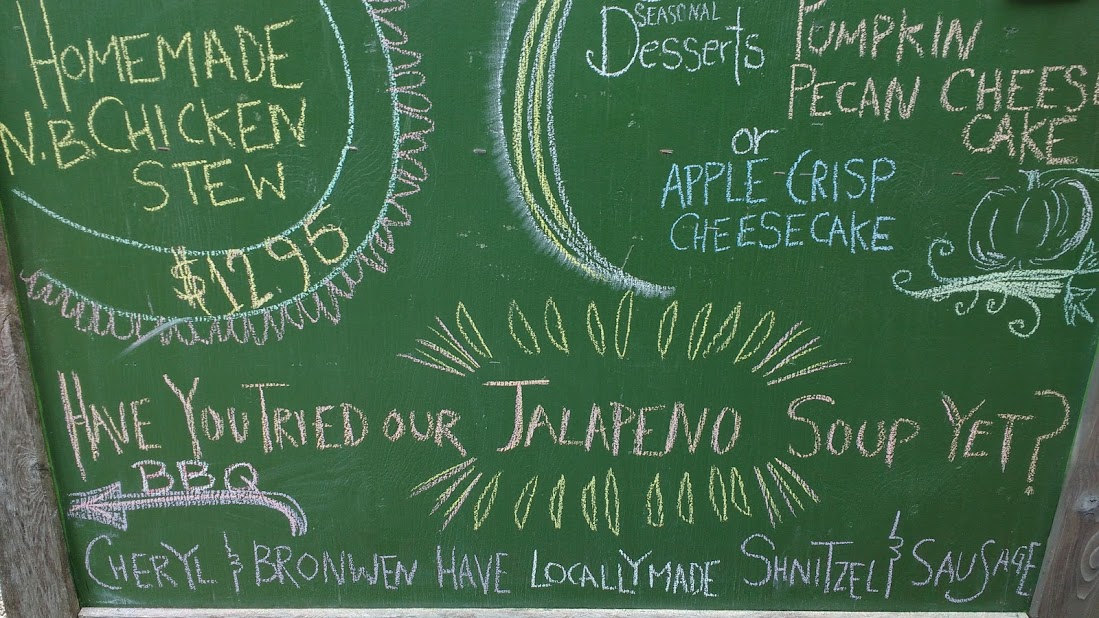 HOMEMADE
N.B CHICKEN
STEW
$12.95
SEASONAL
Desserts
PUMPKIN
PECAN CHEESE
CAKE
or
APPLE CRISP
CHEESECAKE
HAVE YOU TRIED OUR JALAPENO SOUP YET?
BBQ
CHERYL & BRONWEN HAVE LOCALLY MADE SHNITZEL & SAUSAGE